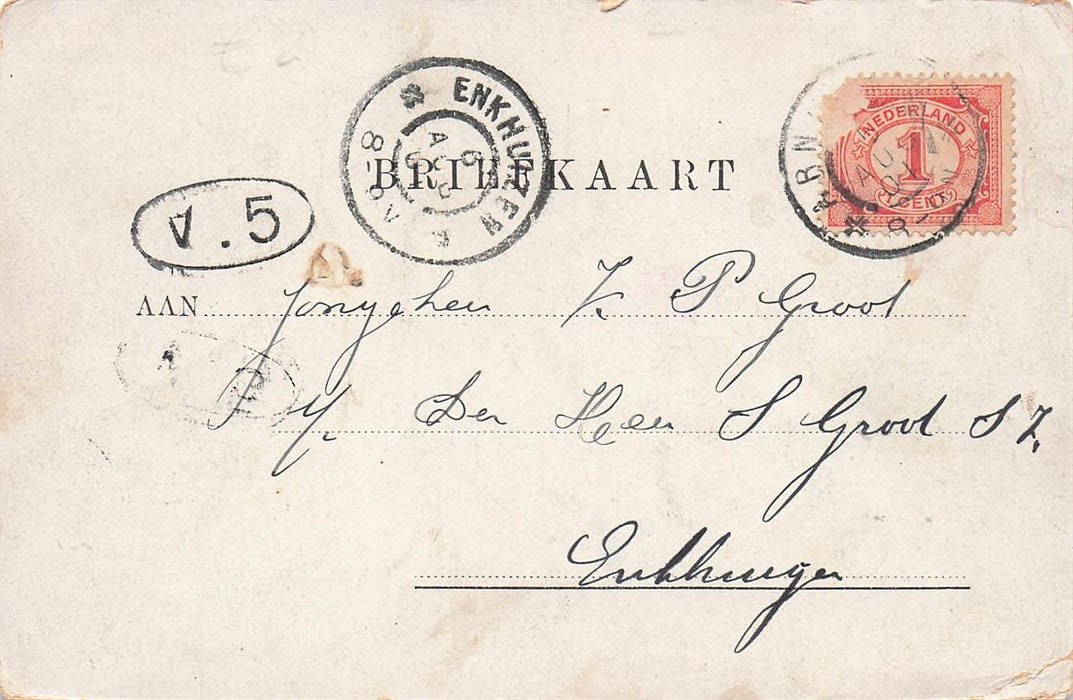 ENKHUIZEN
6 AUG
8
BRIEFKAART
NEDERLAND
1
CENT
V. 5
AAN Jongeheer Z. P Groot
p/ Den Heer S Groot S Z.
Enkhuizen